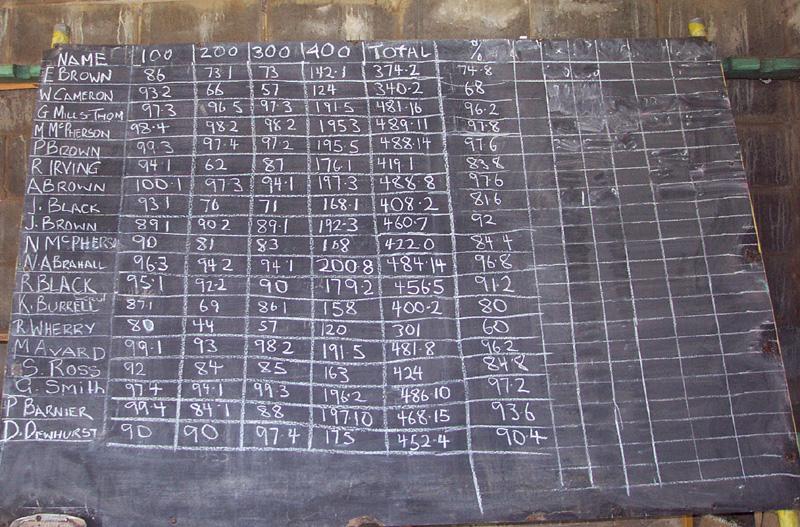 NAME 100 200 300 400 TOTAL %
E BROWN 86 73.1 73 142.1 374.2 74.8
W CAMERON 93.2 66 57 124 340.2 68
G MILLS-THOM 97.3 96.5 97.3 191.5 481.16 96.2
M McPHERSON 98.4 98.2 98.2 195.3 489.11 97.8
P BROWN 99.3 97.4 97.2 195.5 488.14 97.6
R IRVING 94.1 62 87 176.1 419.1 83.8
A BROWN 100.1 97.3 94.1 197.3 488.8 97.6
I. BLACK 93.1 76 71 168.1 408.2 81.6
J. BROWN 89.1 90.2 89.1 192.3 460.7 92
N McPHERS 90 81 83 168 422.0 84.4
N. ABRAHALL 96.3 94.2 94.1 200.8 484.14 96.8
R BLACK 95.1 92.2 90 179.2 456.5 91.2
K. BURRELL 87.1 69 86.1 158 400.2 80
R WHERRY 80 44 57 120 301 60
M AVARD 99.1 93 98.2 191.5 481.8 96.2
S. Ross 92 84 85 163 424 84.8
G. Smith 97.4 94.1 99.3 196.2 486.10 97.2
P BARNIER 99.4 84.1 88 197.10 468.15 93.6
D. DEWHURST 90 90 97.4 175 452.4 90.4